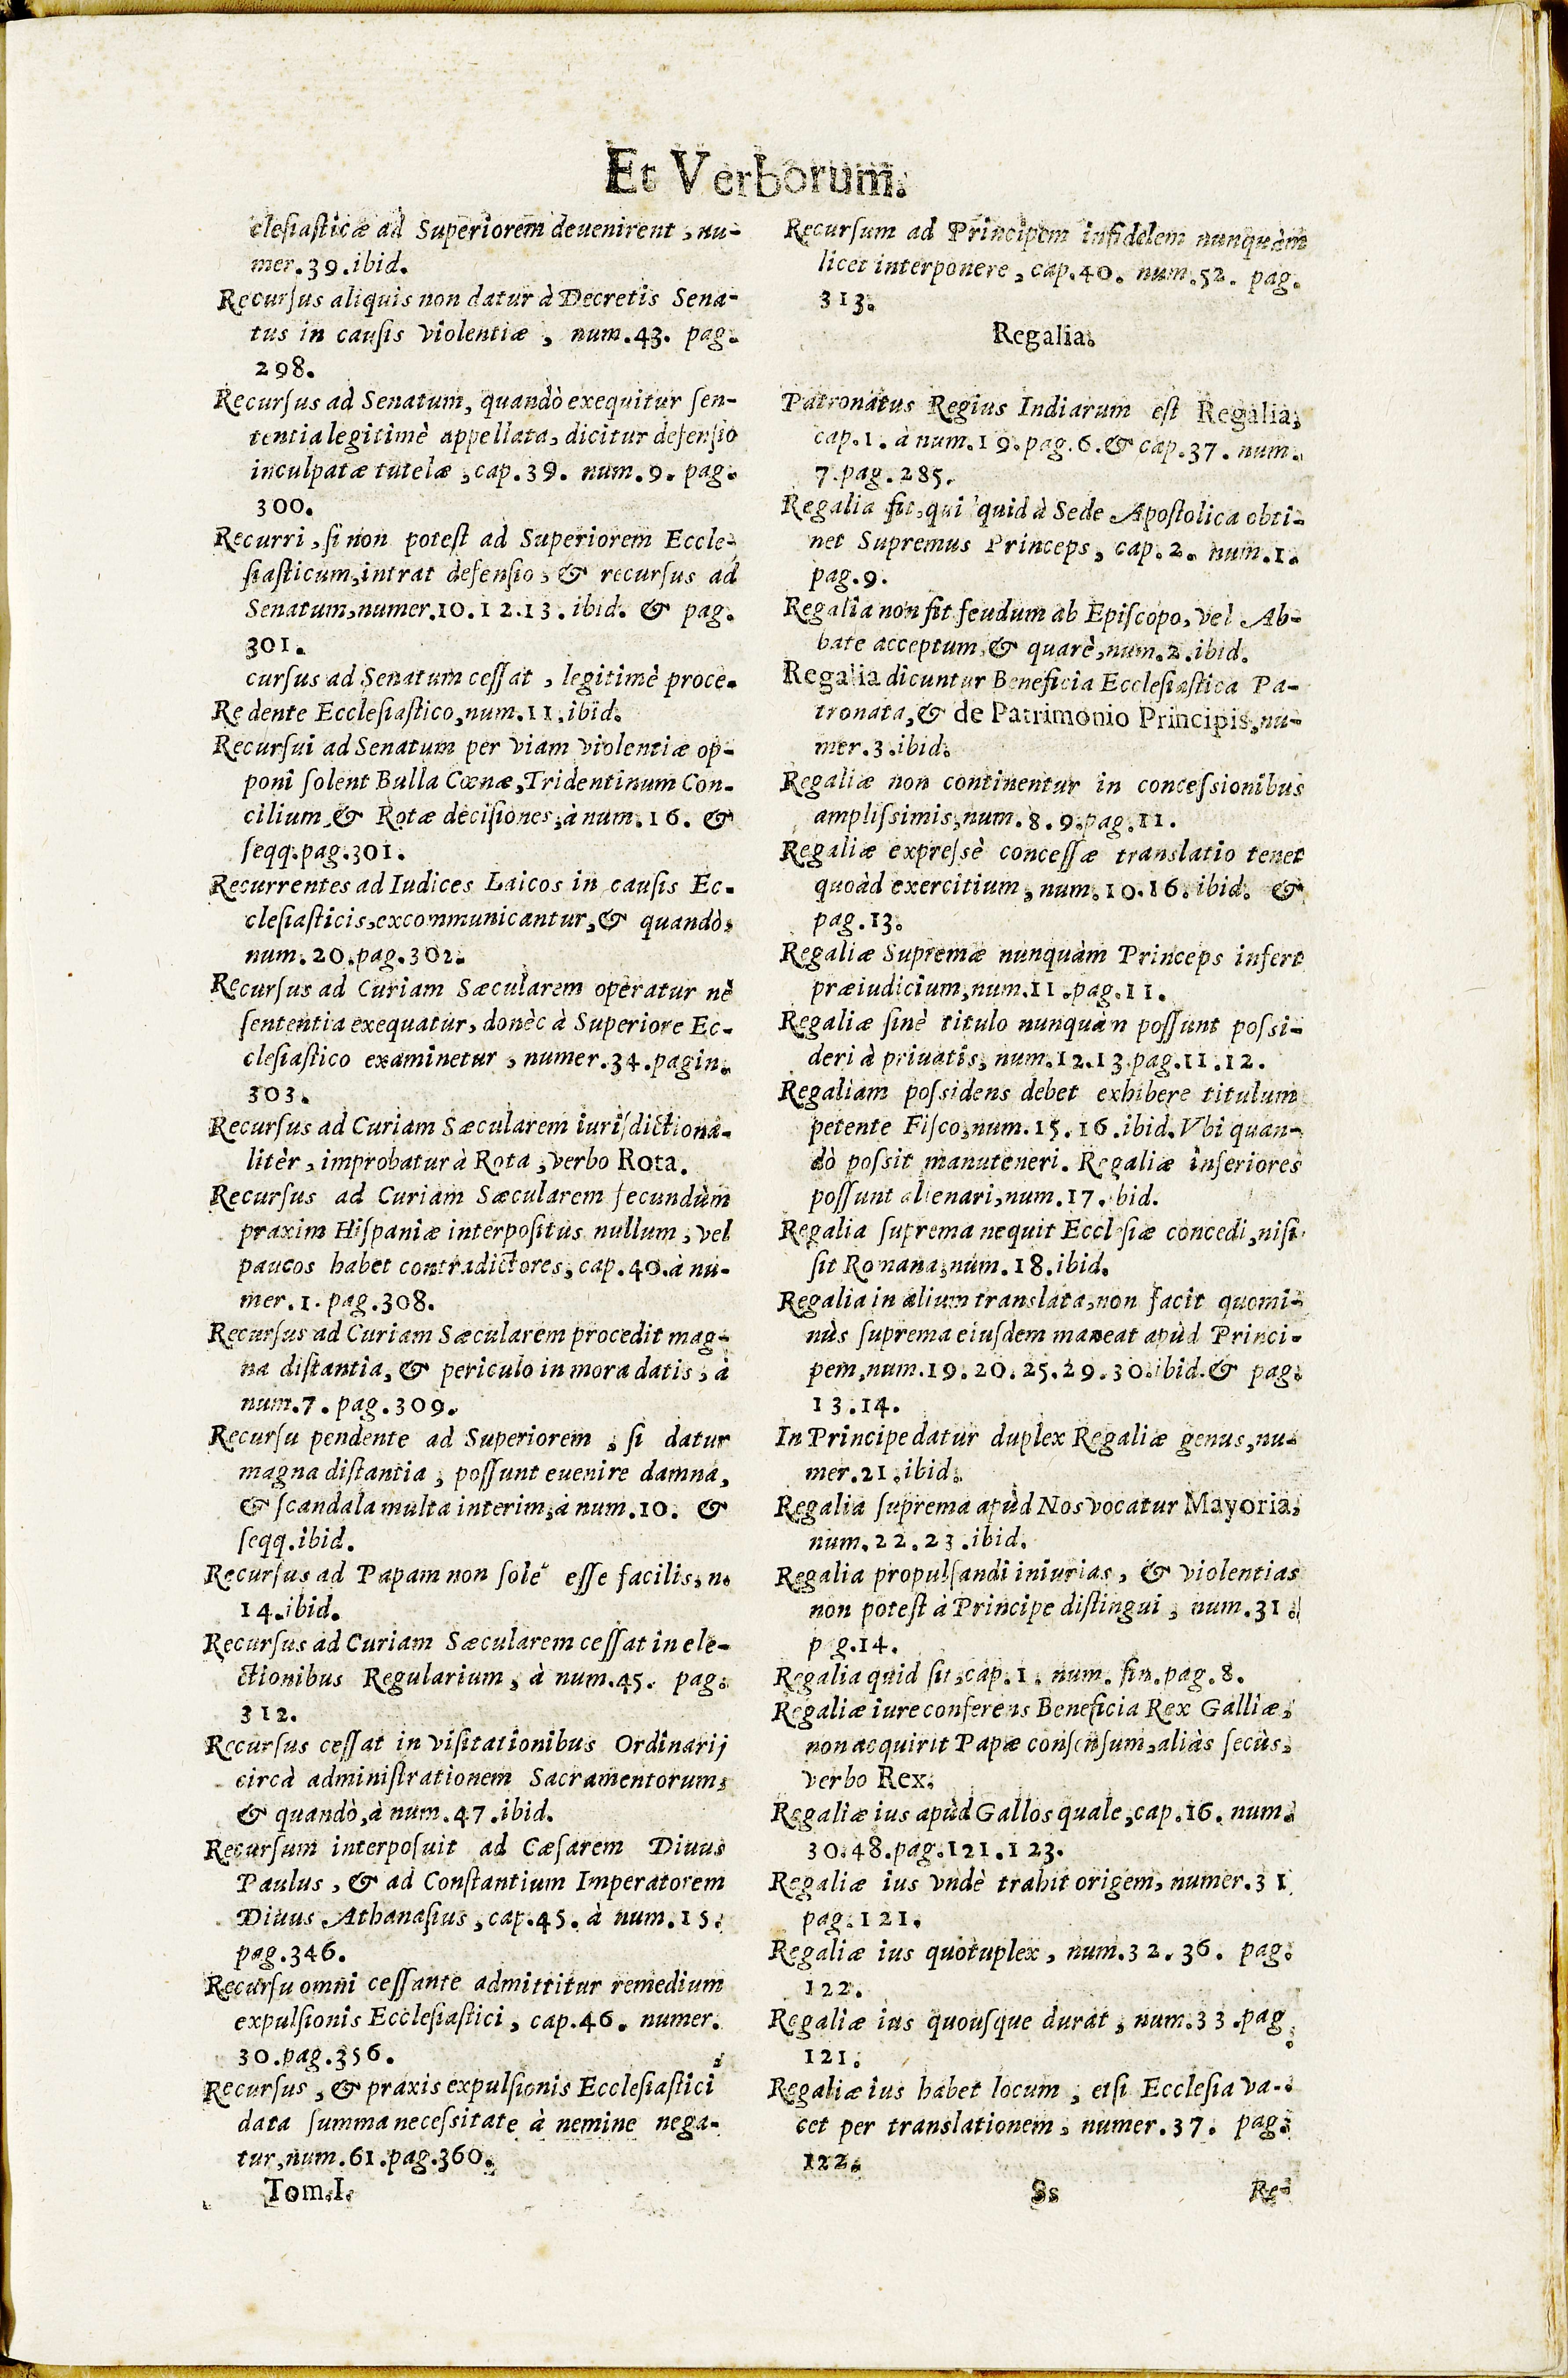 Et Verborum.
clesiasticæ ad Superiorem deuenirent, nu-
mer.39.ibid.
Recursus aliquis non datur à Decretis Sena-
tus in causis violentiæ, num.43. pag.
298.
Recursus ad Senatum, quandò exequitur sen-
tentia legitimè appellata, dicitur defensio
inculpatæ tutelæ, cap.39. num.9. pag.
300.
Recurri, si non potest ad Superiorem Eccle-
siasticum, intrat defensio, & recursus ad
Senatum, numer.10.12.13. ibid. & pag.
301.
cursus ad Senatum cessat, legitimè proce-
Re dente Ecclesiastico, num.11.ibid.
Recursui ad Senatum per viam violentiæ op-
poni solent Bulla Cœnæ, Tridentinum Con-
cilium, & Rotæ decisiones, à num.16. &
seqq.pag.301.
Recurrentes ad Iudices Laicos in causis Ec-
clesiasticis, excommunicantur, & quandò,
num.20.pag.302.
Recursus ad Curiam Sæcularem operatur nè
sententia exequatur, donèc à Superiore Ec-
clesiastico examinetur, numer.34.pagin.
303.
Recursus ad Curiam Sæcularem iurisdictiona-
litèr, improbatur à Rota, verbo Rota.
Recursus ad Curiam Sæcularem secundùm
praxim Hispaniæ interpositus nullum, vel
paucos habet contradictores, cap.40.à nu-
mer.1.pag.308.
Recursus ad Curiam Sæcularem procedit mag-
na distantia, & periculo in mora datis, à
num.7. pag.309.
Recursu pendente ad Superiorem, si datur
magna distantia, possunt euenire damna,
& scandala multa interim, à num.10. &
seqq.ibid.
Recursus ad Papam non solet esse facilis, n.
14.ibid.
Recursus ad Curiam Sæcularem cessat in ele-
ctionibus Regularium, à num.45. pag.
312.
Recursus cessat in visitationibus Ordinarij
circà administrationem Sacramentorum,
& quandò, à num.47.ibid.
Recursum interposuit ad Cæsarem Diuus
Paulus, & ad Constantium Imperatorem
Diuus Athanasius, cap.45. à num.15.
pag.346.
Recursu omni cessante admittitur remedium
expulsionis Ecclesiastici, cap.46. numer.
30.pag.356.
Recursus, & praxis expulsionis Ecclesiastici
data summa necessitate à nemine nega-
tur, num.61.pag.360.
Tom.I.
Recursum ad Principem infidelem nunquàm
licet interponere, cap.40. num.52. pag.
313.
Regalia.
Patronatus Regius Indiarum est Regalia,
cap.1. à num.19.pag.6.& cap.37. num.
7.pag.285.
Regalia fit, qui quid à Sede Apostolica obti-
net Supremus Princeps, cap.2. num.1.
pag.9.
Regalia non fit feudum ab Episcopo, vel Ab-
bate acceptum, & quarè, num.2.ibid.
Regalia dicuntur Beneficia Ecclesiastica Pa-
tronata, & de Patrimonio Principis, nu-
mer.3.ibid.
Regaliæ non continentur in concessionibus
amplissimis, num.8.9.pag.11.
Regaliæ expressè concessæ translatio tenet
quoàd exercitium, num.10.16.ibid. &
pag.13.
Regaliæ Supremæ nunquàm Princeps infert
præiudicium, num.11.pag.11.
Regaliæ sinè titulo nunquàm possunt possi-
deri à priuatis, num.12.13.pag.11.12.
Regaliam possidens debet exhibere titulum
petente Fisco, num.15.16.ibid. Vbi quan-
dò possit manuteneri. Regaliæ inferiores
possunt alienari, num.17.ibid.
Regalia suprema nequit Ecclesiæ concedi, nisi
sit Romana, num.18.ibid.
Regalia in alium translata, non facit quomi-
nùs suprema eiusdem maneat apùd Princi-
pem, num.19.20.25.29.30.ibid.& pag.
13.14.
In Principe datur duplex Regaliæ genus, nu-
mer.21.ibid.
Regalia suprema apùd Nos vocatur Mayoria,
num.22.23.ibid.
Regalia propulsandi iniurias, & violentias
non potest à Principe distingui, num.31.
pag.14.
Regalia quid sit, cap.1. num. fin.pag.8.
Regaliæ iure conferens Beneficia Rex Galliæ,
non acquirit Papæ consensum, aliàs secùs,
verbo Rex.
Regaliæ ius apùd Gallos quale, cap.16. num.
30.48.pag.121.123.
Regaliæ ius vndè trahit origem, numer.31
pag.121.
Regaliæ ius quotuplex, num.32.36. pag.
122.
Regaliæ ius quousque durat, num.33.pag.
121.
Regaliæ ius habet locum, etsi Ecclesia va-
cet per translationem, numer.37. pag.
122.
Ss
Re-